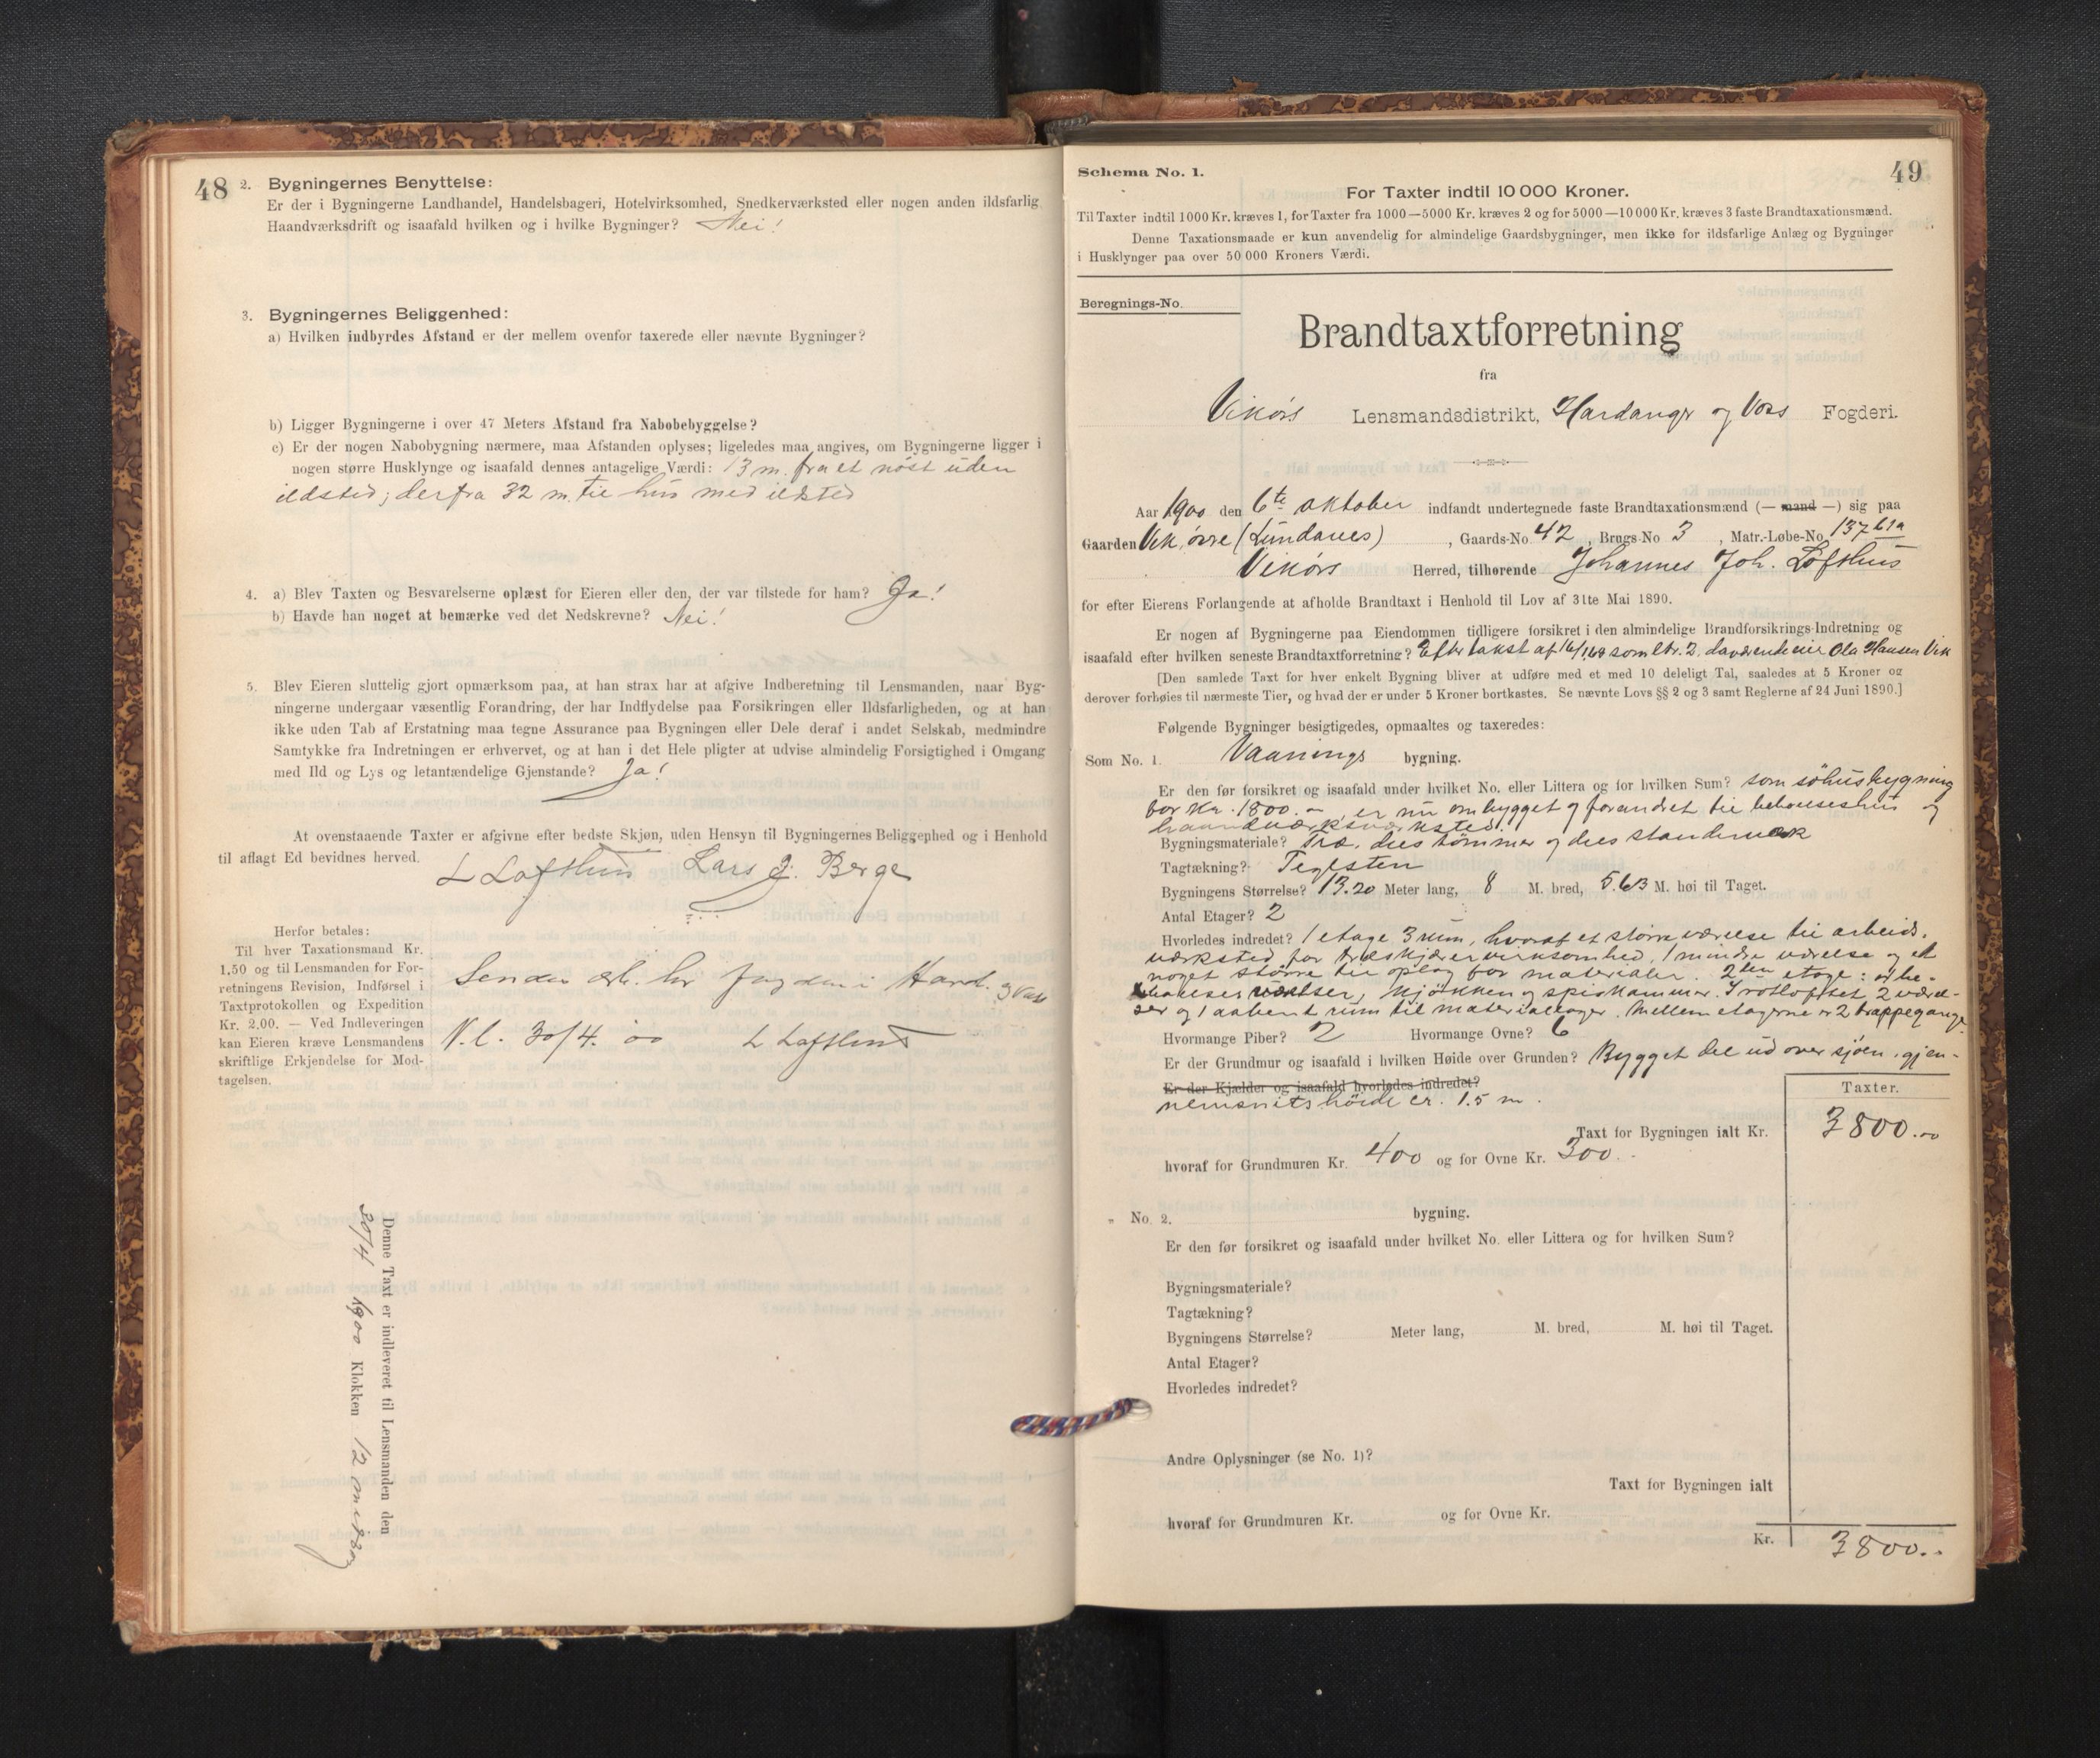 48
2. Bygningernes Benyttelse:
Er der i Bygningerne Landhandel, Handelsbageri, Hotelvirksomhed, Snedkerværksted eller nogen anden ildsfarlig
Haandværksdrift og isaafald hvilken og i hvilke Bygninger? Nei!
3. Bygningernes Beliggenhed:
a) Hvilken indbyrdes Afstand er der mellem ovenfor taxerede eller nævnte Bygninger?
b) Ligger Bygningerne i over 47 Meters Afstand fra Nabobebyggelse?
c) Er der nogen Nabobygning nærmere, maa Afstanden oplyses; ligeledes maa angives, om Bygningerne ligger i
nogen større Husklynge og isaafald dennes antagelige Værdi: 13 m. fra et nöst uden
ildsted; derfra 32 m. til hus med ildsted
4. a) Blev Taxten og Besvarelserne oplæst for Eieren eller den, der var tilstede for ham? Ja!
b) Havde han noget at bemærke ved det Nedskrevne? Nei!
5. Blev Eieren sluttelig gjort opmærksom paa, at han strax har at afgive Indberetning til Lensmanden, naar Byg-
ningerne undergaar væsentlig Forandring, der har Indflydelse paa Forsikringen eller Ildsfarligheden, og at han
ikke uden Tab af Erstatning maa tegne Assurance paa Bygningen eller Dele deraf i andet Selskab, medmindre
Samtykke fra Indretningen er erhvervet, og at han i det Hele pligter at udvise almindelig Forsigtighed i Omgang
med Ild og Lys og letantændelige Gjenstande? Ja!
At ovenstaaende Taxter er afgivne efter bedste Skjøn, uden Hensyn til Bygningernes Beliggenhed og i Henhold
til aflagt Ed bevidnes herved.
L Lofthus Lars J. Berge
Herfor betales:
Til hver Taxationsmand Kr.
1.50 og til Lensmanden for For-
retningens Revision, Indførsel i
Taxtprotokollen og Expedition
Kr. 2.00. — Ved Indleveringen
kan Eieren kræve Lensmandens
skriftlige Erkjendelse for Mod-
tagelsen.
Sendes hr fogden i Hard. & Voss
V. l. 30/4. 00 L Lofthus
Denne Taxt er indleveret til Lensmanden den
30/4 1900 Klokken 12 middag
Schema No. 1.
49
For Taxter indtil 10 000 Kroner.
Til Taxter indtil 1000 Kr. kræves 1, for Taxter fra 1000—5000 Kr. kræves 2 og for 5000—10000 Kr. kræves 3 faste Brandtaxationsmænd.
Denne Taxationsmaade er kun anvendelig for almindelige Gaardsbygninger, men ikke for ildsfarlige Anlæg og Bygninger
i Husklynger paa over 50 000 Kroners Værdi.
Beregnings-No.
Brandtaxtforretning
fra
Vikørs Lensmandsdistrikt, Hardanger og Voss Fogderi.
Aar 1900 den 6te oktober indfandt undertegnede faste Brandtaxationsmænd (— mand —) sig paa
Gaarden Vik, øvre (Sundanes), Gaards-No. 42, Brugs-No 3, Matr.-Løbe-No. 137 b1a
Vikørs Herred, tilhørende Johannes Joh. Lofthus
for efter Eierens Forlangende at afholde Brandtaxt i Henhold til Lov af 31te Mai 1890.
Er nogen af Bygningerne paa Eiendommen tidligere forsikret i den almindelige Brandforsikrings-Indretning og
isaafald efter hvilken seneste Brandtaxtforretning? Efter takst af 16/1 68 som ltr. 2. daværende eier Ola Hansen Vik
[Den samlede Taxt for hver enkelt Bygning bliver at udføre med et med 10 deleligt Tal, saaledes at 5 Kroner og
derover forhøies til nærmeste Tier, og hvad der er under 5 Kroner bortkastes. Se nævnte Lovs §§ 2 og 3 samt Reglerne af 24 Juni 1890.]
Følgende Bygninger besigtigedes, opmaaltes og taxeredes:
Som No. 1. Vaanings bygning.
Er den før forsikret og isaafald under hvilket No. eller Littera og for hvilken Sum? som söhusbygning
for Kr. 1800.— er nu ombygget og forandret til beboelseshus og
haandværksværksted.
Bygningsmateriale? Træ, dels tömmer og dels standerværk
Tagtækning? Teglsten
Bygningens Størrelse? 13.20 Meter lang, 8 M. bred, 5.63 M. høi til Taget.
Antal Etager? 2
Hvorledes indredet? 1 etage 3 rum, hvoraf et större værelse til arbeids-
værksted for træskjærervirksomhed, 1 mindre værelse og et
noget större til oplag for materialer. 2den etage: be-
boelses værelser, kjökken og spiskammer. I rotloftet 2 værel-
ser og 1 aabent rum til materiallager. Mellem etagerne er 2 trappegange.
Hvormange Piber? 2 Hvormange Ovne? 6
Er der Grundmur og isaafald i hvilken Høide over Grunden? Bygget del ud over sjöen, gjen-
Er der Kjælder og isaafald hvorledes indredet?
nemsnitshöide er 1.5 m.
Taxter.
Taxt for Bygningen ialt Kr. 3800.00
hvoraf for Grundmuren Kr. 400 og for Ovne Kr. 300.
„ No. 2. bygning.
Er den før forsikret og isaafald under hvilket No. eller Littera og for hvilken Sum?
Bygningsmateriale?
Tagtækning?
Bygningens Størrelse? Meter lang, M. bred, M. høi til Taget.
Antal Etager?
Hvorledes indredet?
Andre Oplysninger (se No. 1)?
Taxt for Bygningen ialt
hvoraf for Grundmuren Kr. og for Ovne Kr.
Kr. 3800..